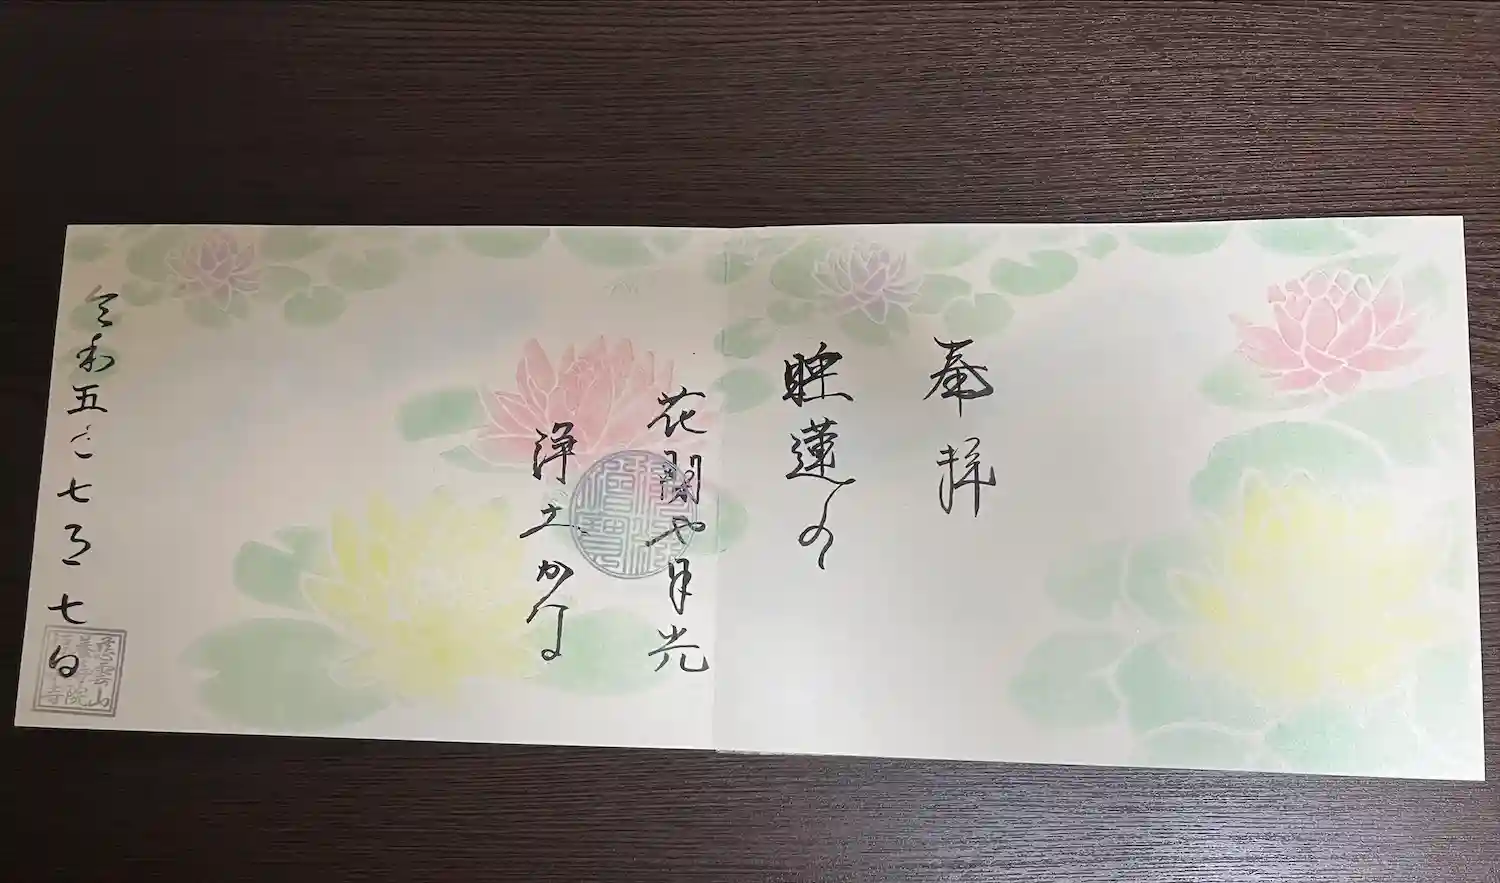 奉拝
睡蓮の
花開や月光
浄土かな
令和五年七月七日
慈雲山
善寿院
寺